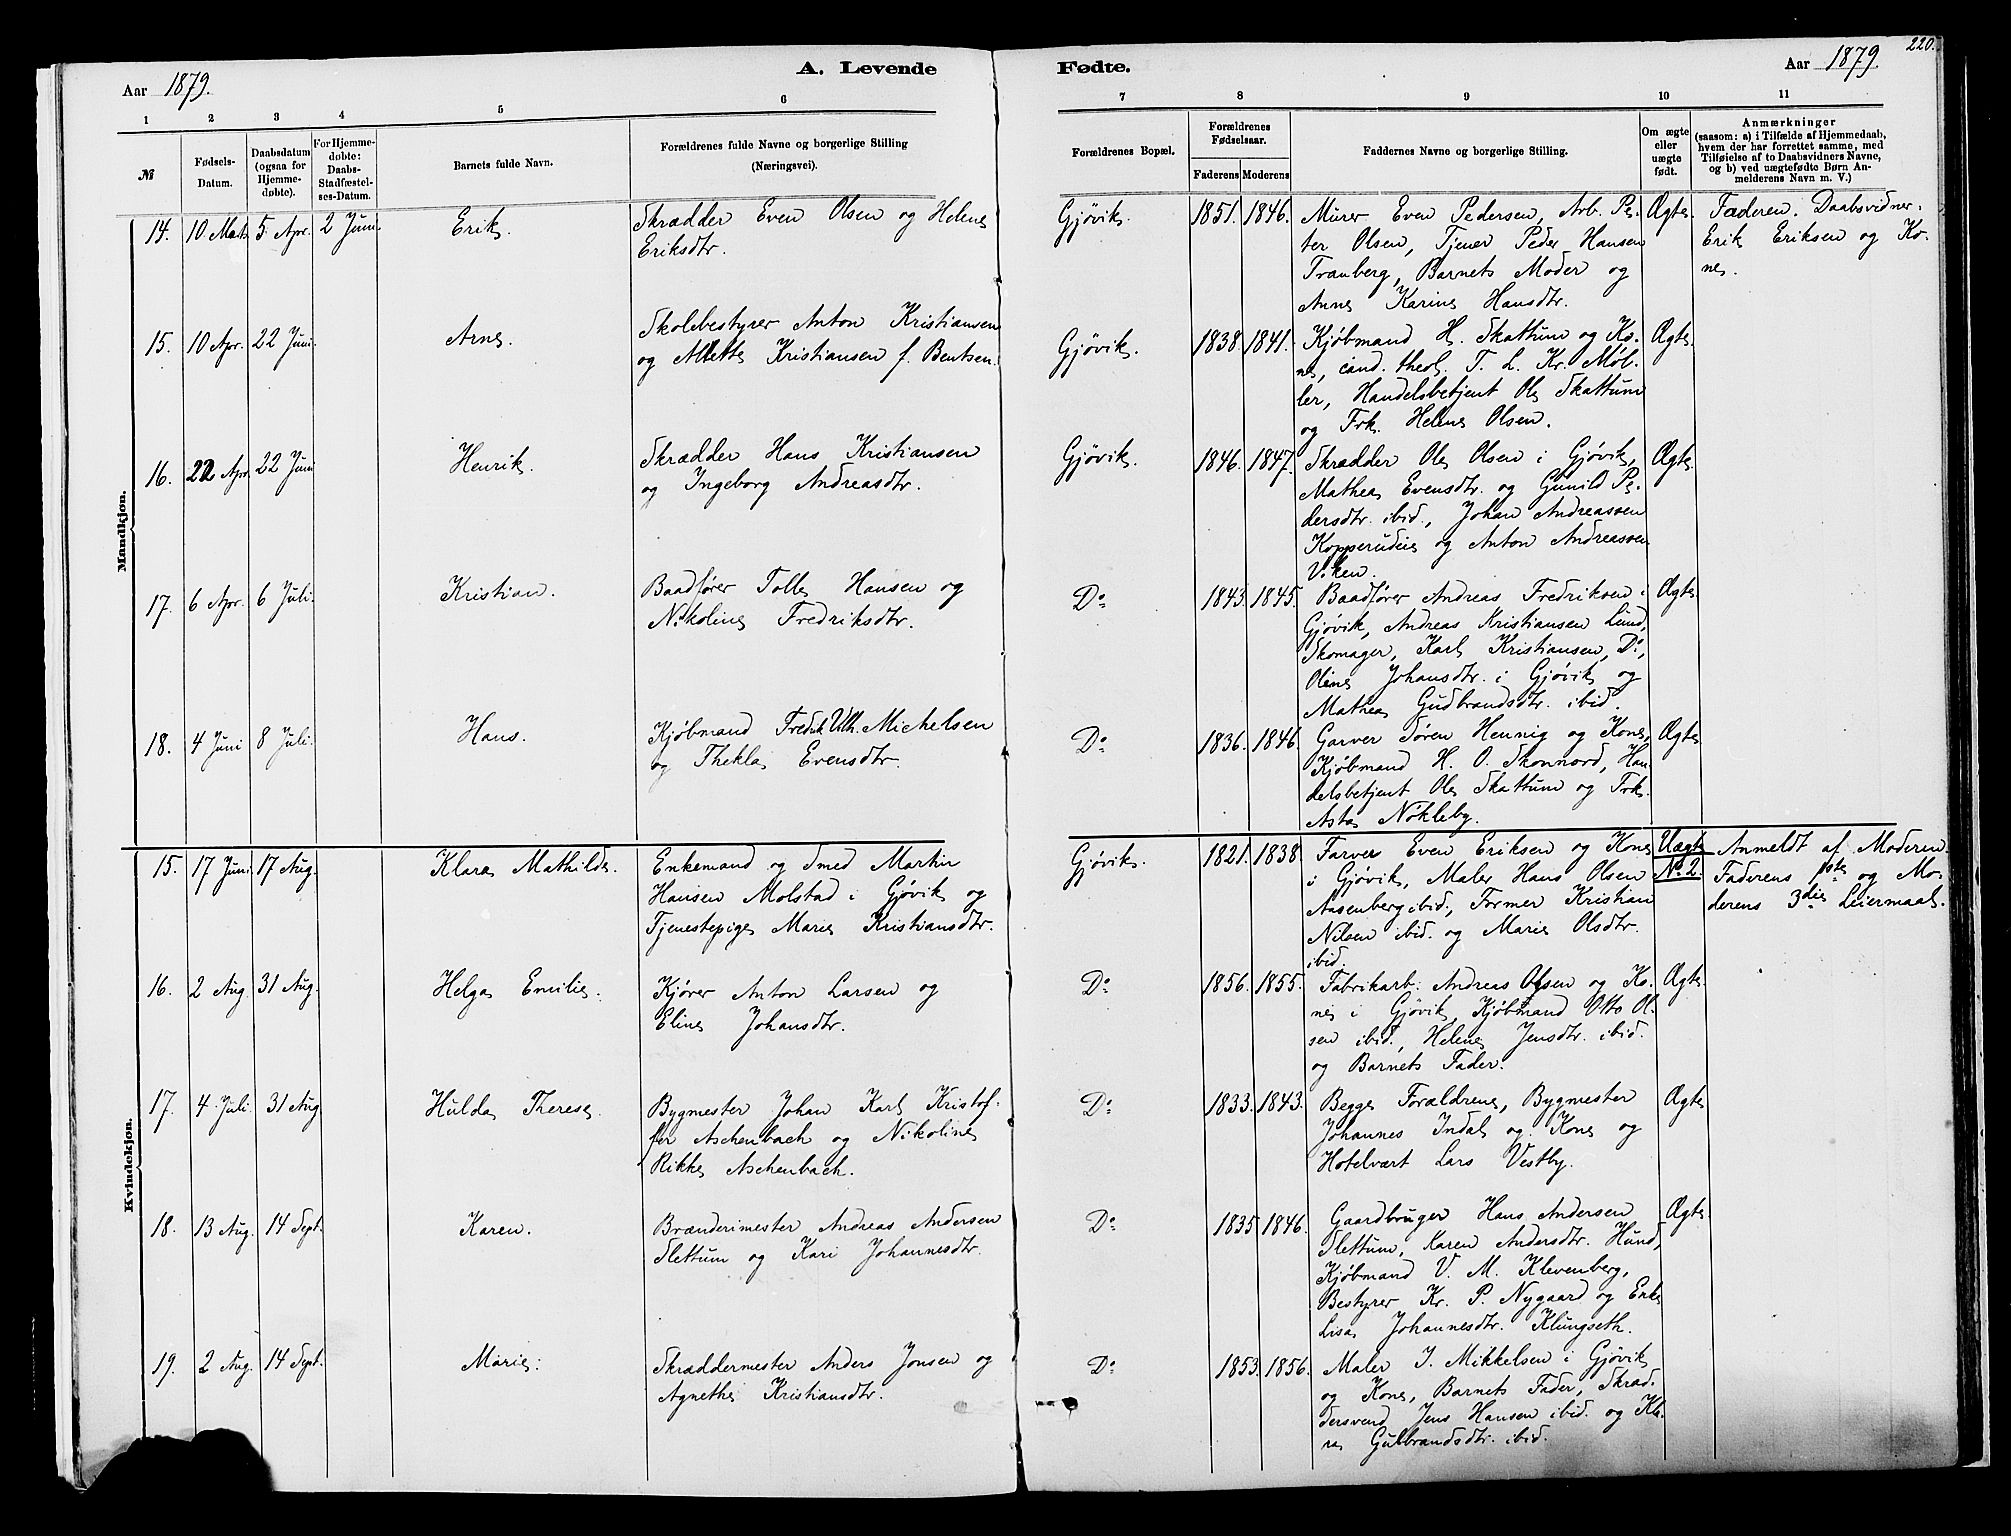 220.
Aar 1879.
A. Levende
Fødte.
Aar 1879.
1 2 3 4 5 6 7 8 9 10 11
№
Fødsels-
Datum.
Daabsdatum
(ogsaa for
Hjemme-
døbte).
For Hjemme-
døbte:
Daabs-
Stadfæstel-
ses-Datum.
Barnets fulde Navn.
Forældrenes fulde Navne og borgerlige Stilling
(Næringsvei).
Forældrenes Bopæl.
Forældrenes
Fødselsaar.
Faderens Moderens
Faddernes Navne og borgerlige Stilling.
Om ægte
eller
uægte
født.
Anmærkninger
(saasom: a) i Tilfælde af Hjemmedaab,
hvem der har forrettet samme, med
Tilføielse af to Daabsvidners Navne,
og b) ved uægtefødte Børn An-
melderens Navn m. V.)
Mandkjøn.
14. 10 Mart. 5 Apr. 2 Juni. Erik.
Skrædder Even Olsen og Helene
Eriksdtr.
Gjøvik. 1851. 1846.
Murer Even Pedersen, Arb. Pe-
ter Olsen, Tjener Peder Hansen
Tranberg, Barnets Moder og
Anne Karine Hansdtr.
Ægte.
Faderen. Daabsvidner:
Erik Eriksen og Ko-
ne.
15. 10 Apr. 22 Juni. Arne.
Skolebestyrer Anton Kristiansen
og Allette Kristiansen f. Bentsen.
Gjøvik. 1838. 1841.
Kjøbmand H. Skattum og Ko-
ne, cand. theol. T. L. Kr. Møl-
ler, Handelsbetjent Ole Skattum
og Frk. Helene Olsen.
Ægte.
16. 22 Apr. 22 Juni Henrik.
Skrædder Hans Kristiansen
og Ingeborg Andreasdtr.
Gjøvik. 1846. 1847.
Skrædder Ole Olsen i Gjøvik,
Mathea Evensdtr. og Gunild Pe-
dersdtr. ibid., Johan Andreassen
Kopperudeie og Anton Andreassen
Viken.
Ægte.
17. 6 Apr. 6 Juli. Kristian.
Baadfører Tolle Hansen og
Nikoline Fredriksdtr.
Do 1843. 1845.
Baadfører Andreas Fredriksen i
Gjøvik, Andreas Kristiansen Lund,
Skomager, Karl Kristiansen, Do,
Oline Johansdtr. i Gjøvik og
Mathea Gudbrandsdtr. ibid.
Ægte.
18. 4 Juni 8 Juli. Hans.
Kjøbmand Fredrik Vilh. Michelsen
og Thekla Evensdtr.
Do 1836. 1846.
Garver Søren Hennig og Kone,
Kjøbmand H. O. Skonnord, Han-
delsbetjent Ole Skattum og Frk.
Asta Nøkleby.
Ægte.
Kvindekjøn.
15. 17 Juni 17 Aug. Klara Mathilde.
Enkemand og Smed Martin
Hansen Molstad i Gjøvik og
Tjenestepige Marie Kristiansdtr.
Gjøvik. 1821. 1838.
Farver Even Eriksen og Kone
i Gjøvik, Maler Hans Olsen
Aasenberg ibid., Former Kristian
Nilsen ibid. og Marie Olsdtr.
ibid.
Uægte
No 2.
Anmeldt af Moderen.
Faderens 1ste og Mo-
derens 3die Leiermaal.
16. 2 Aug. 31 Aug. Helga Emilie.
Kjører Anton Larsen og
Eline Johansdtr.
Do 1856. 1855.
Fabrikarb. Andreas Olsen og Ko-
ne i Gjøvik, Kjøbmand Otto Ol-
sen ibid., Helene Jensdtr. ibid.
og Barnets Fader.
Ægte.
17. 4 Juli. 31 Aug. Hulda Therese.
Bygmester Johan Karl Kristof-
fer Aschenbach og Nikoline
Rikke Aschenbach.
Do 1833. 1843.
Begge Forældrene, Bygmester
Johannes Indal og Kone og
Hotelvært Lars Vestby.
Ægte
18. 13 Aug. 14 Sept. Karen.
Brænderimester Andreas Andersen
Slettum og Kari Johannesdtr.
Do 1835 1846.
Gaardbruger Hans Andersen
Slettum, Karen Andersdtr. Hund,
Kjøbmand V. M. Klevenberg,
Bestyrer Kr. P. Nygaard og Enke
Lisa Johannesdtr. Klungseth.
Ægte.
19. 2 Aug. 14 Sept. Marie.
Skræddermester Anders Jonsen og
Agnethe Kristiansdtr.
Do 1853. 1856.
Maler J. Mikkelsen i Gjøvik
og Kone, Barnets Fader, Skræd-
dersvend Jens Hansen ibid. og Kla-
ra Gulbrandsdtr. ibid.